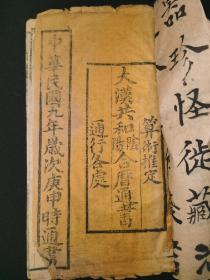 器珍怪徒藏
算術推定
大漢共和陰陽合曆通書
通行各處
中華民國九年歲次庚申時通書